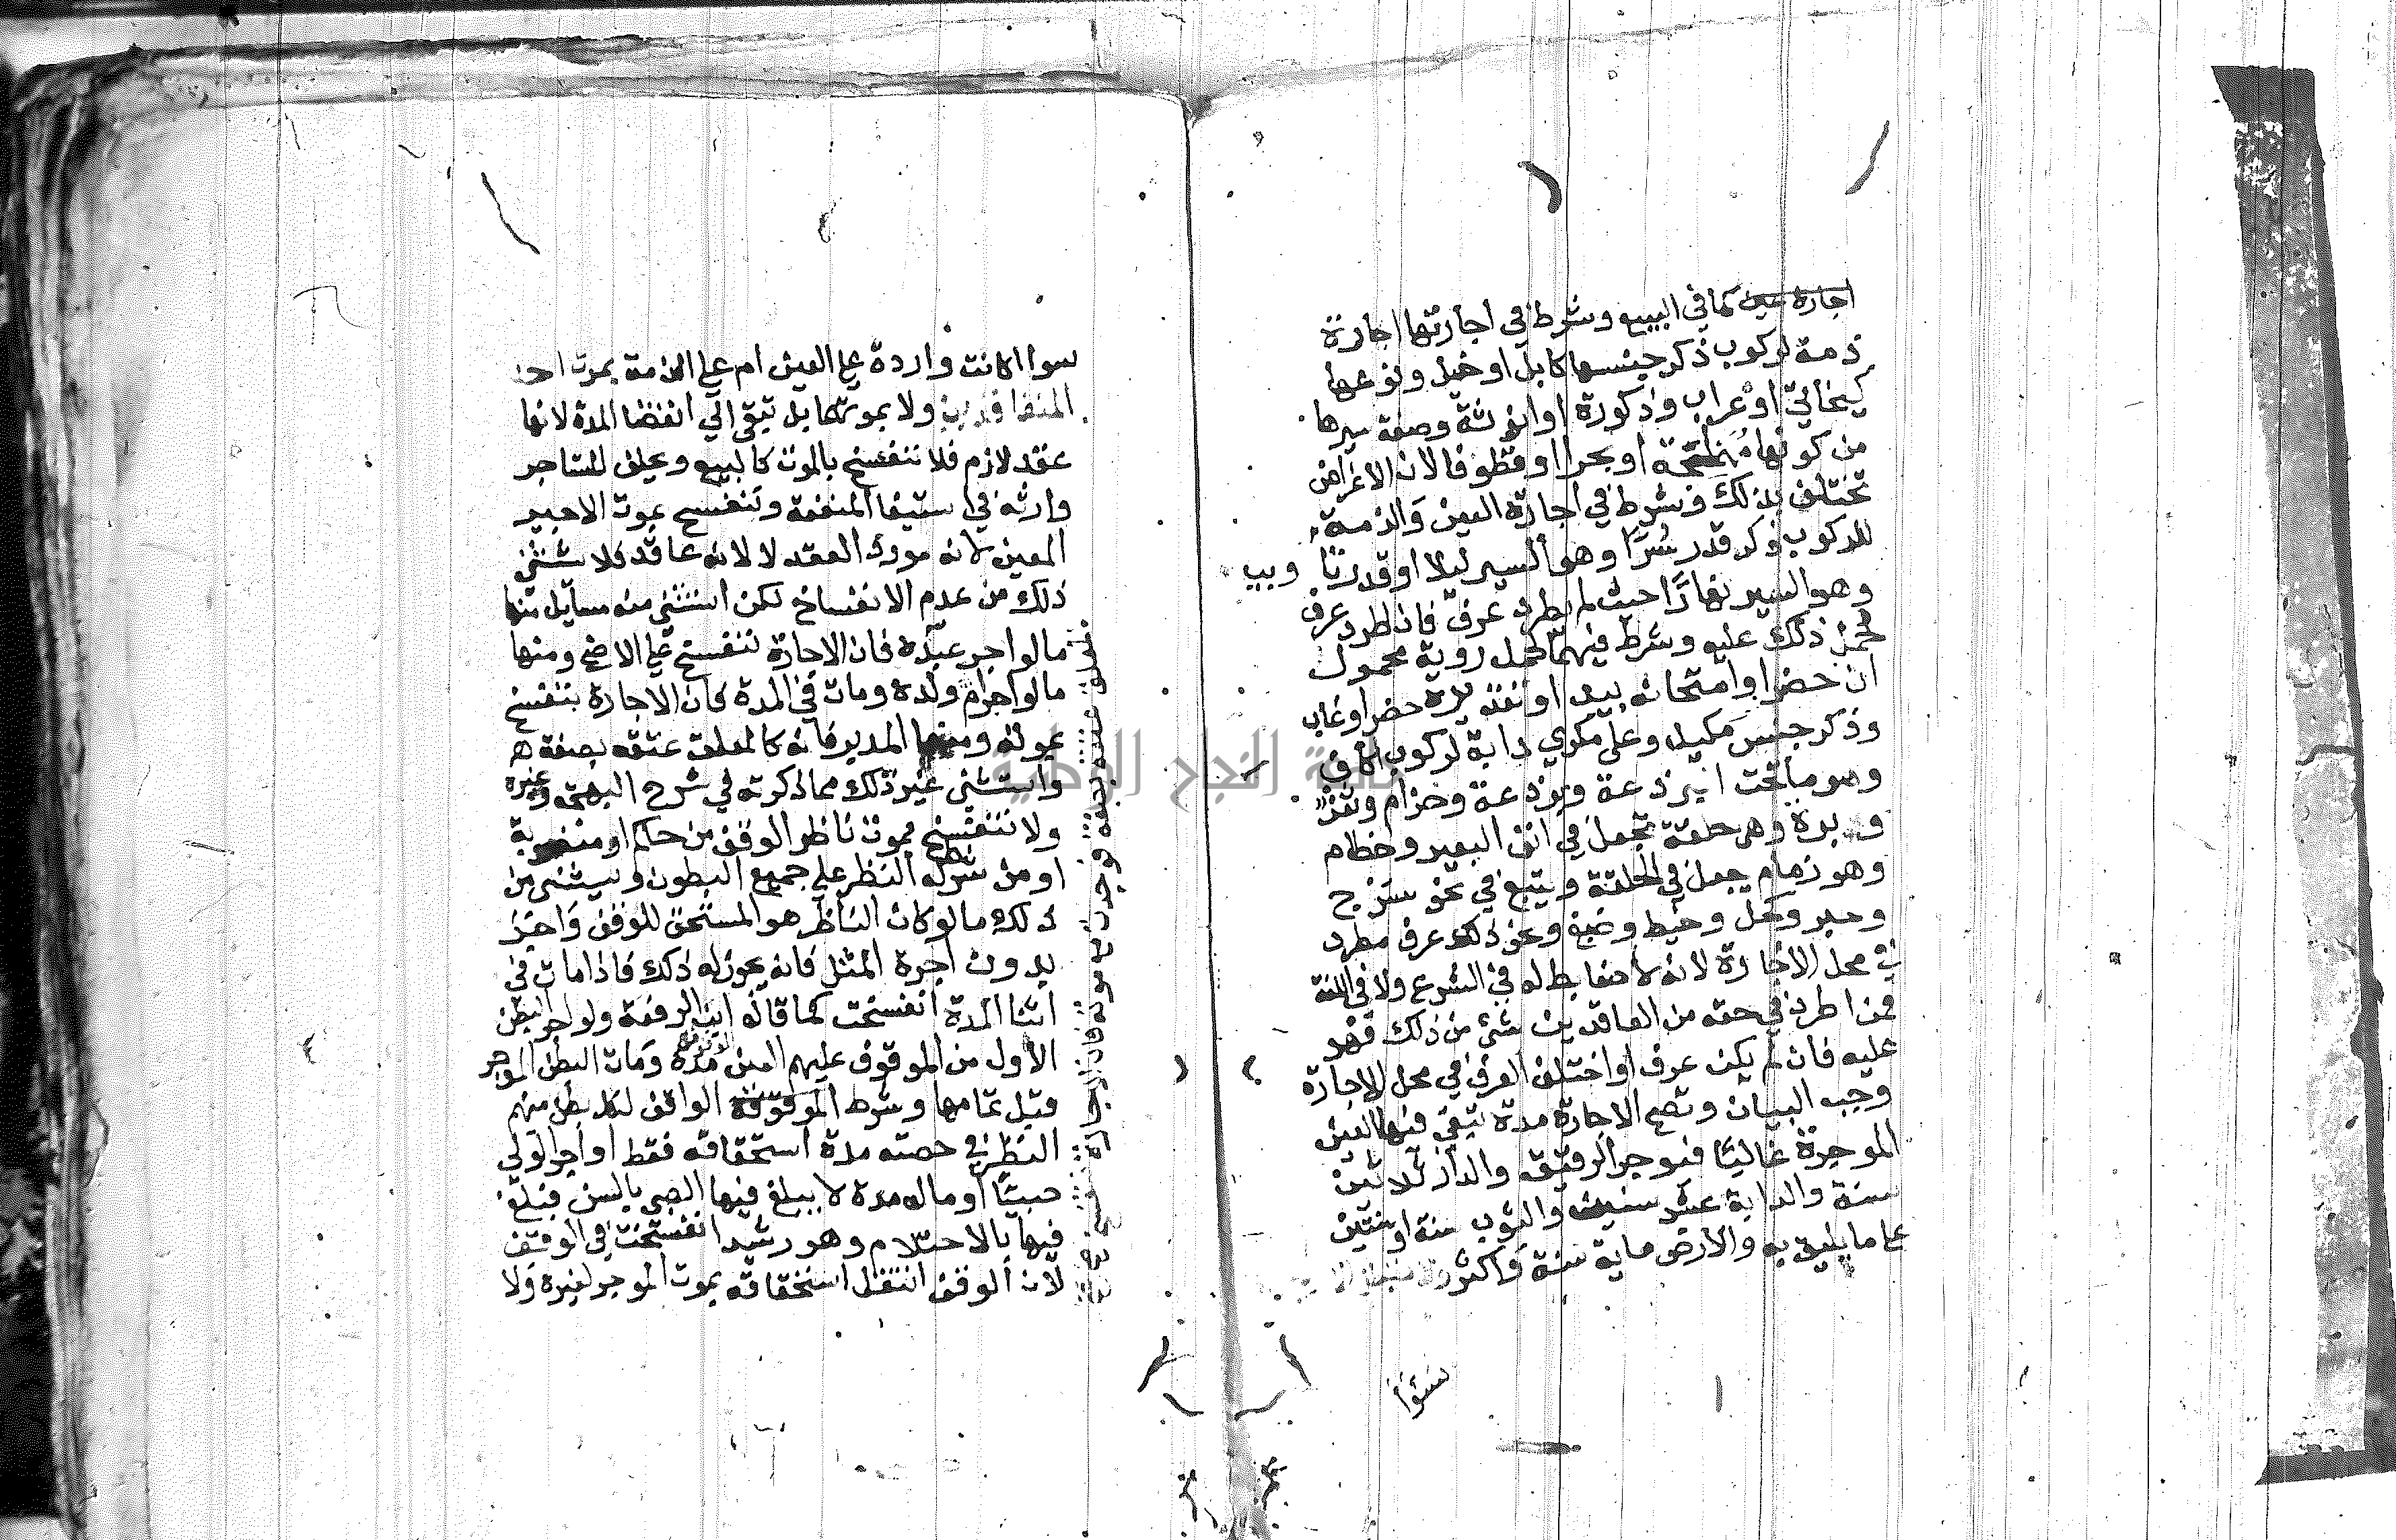 اجارة عين كما في البيع وشرط في اجارتها اجارة
ذمة لركوب ذكر جنسها كابل او خيل ونوعها
كبخاتي او عراب وذكورة او انوثة وصفة سيرها
من كونها مهملجة او بحرا او قطوفا لان الاغراض
تختلف بذلك وشرط في اجارة العين والذمة
للركوب ذكر قدر سرى وهو السير ليلا او قدر
وهو السير نهارا حيث لم يطرد عرف فان اطرد عرف
حمل ذلك عليه وشرط فيهما لحمل روية محمول
ان حضر او امتحانه بيد او حضر او غاب
وذكر جنس مكيل وعلى مكري دابة لركوب اكاف
وهو ما تحت البرذعة وبرذعة وحزام وثفر
وبرة وهي حلقة تجعل في انف البعير وخطام
وهو زمام يجعل في الحلقة ويتبع في نحو سرج
وحبر وكحل وخيط وصبغ ونحو ذلك عرف مطرد
في محل الاجارة لانه لا ضابط له في الشرع ولا في اللغة
فمن اطرد في حقه من العاقدين شئ من ذلك فهو
عليه فان لم يكن عرف او اختلف العرف في محل الاجارة
وجب البيان وتصح الاجارة مدة تبقى فيها العين
الموجرة غالبا فيوجر الرقيق والدار ثلاثين
سنة والدابة عشر سنين والثوب سنة او سنتين
على ما يليق به والارض ماية سنة واكثر
سوا
سوا كانت واردة على العين ام على الذمة بموت احد
ولا بموتهما بل تبقى الى انقضا المدة لانها
عقد لازم فلا تنفسخ بالموت كالبيع ويخلف المستاجر
وارثه في استيفا المنفعة وتنفسخ بموت الاجير
المعين لانه مورد العقد لا لانه عاقد فلا يستثنى
ذلك من عدم الانفساخ لكن استثنى منه مسايل منها
ما لو اجر عبده فان الاجارة تنفسخ على الاصح ومنها
ما لو اجر ام ولده ومات في المدة فان الاجارة تنفسخ
بموته ومنها المدبر فانه كالمعلق عتقه بصفة
واستثنى غير ذلك مما ذكرته في شرح البهجة وغيره
ولا تنفسخ بموت ناظر الوقف من حاكم او منصوبه
او من شرط له النظر على جميع البطون ويستثنى من
ذلك ما لو كان الناظر هو المستحق للوقف واجر
بدون اجرة المثل فانه يجوز له ذلك فاذا مات في
اثنا المدة انفسخت كما قاله ابن الرفعة ولو اجر البطن
الاول من الموقوف عليهم العين مدة ومات البطن الموجر
قبل تمامها وشرط الموقوفة الواقف لكل بطن منهم
النظر في حصته مدة استحقاقه فقط او اجر الولي
صبيا او ماله مدة لا يبلغ فيها الصبي بالسن فبلغ
فيها بالاحتلام وهو رشيد انفسخت في الوقف
لان الوقف انتقل استحقاقه بموت الموجر لغيره ولا